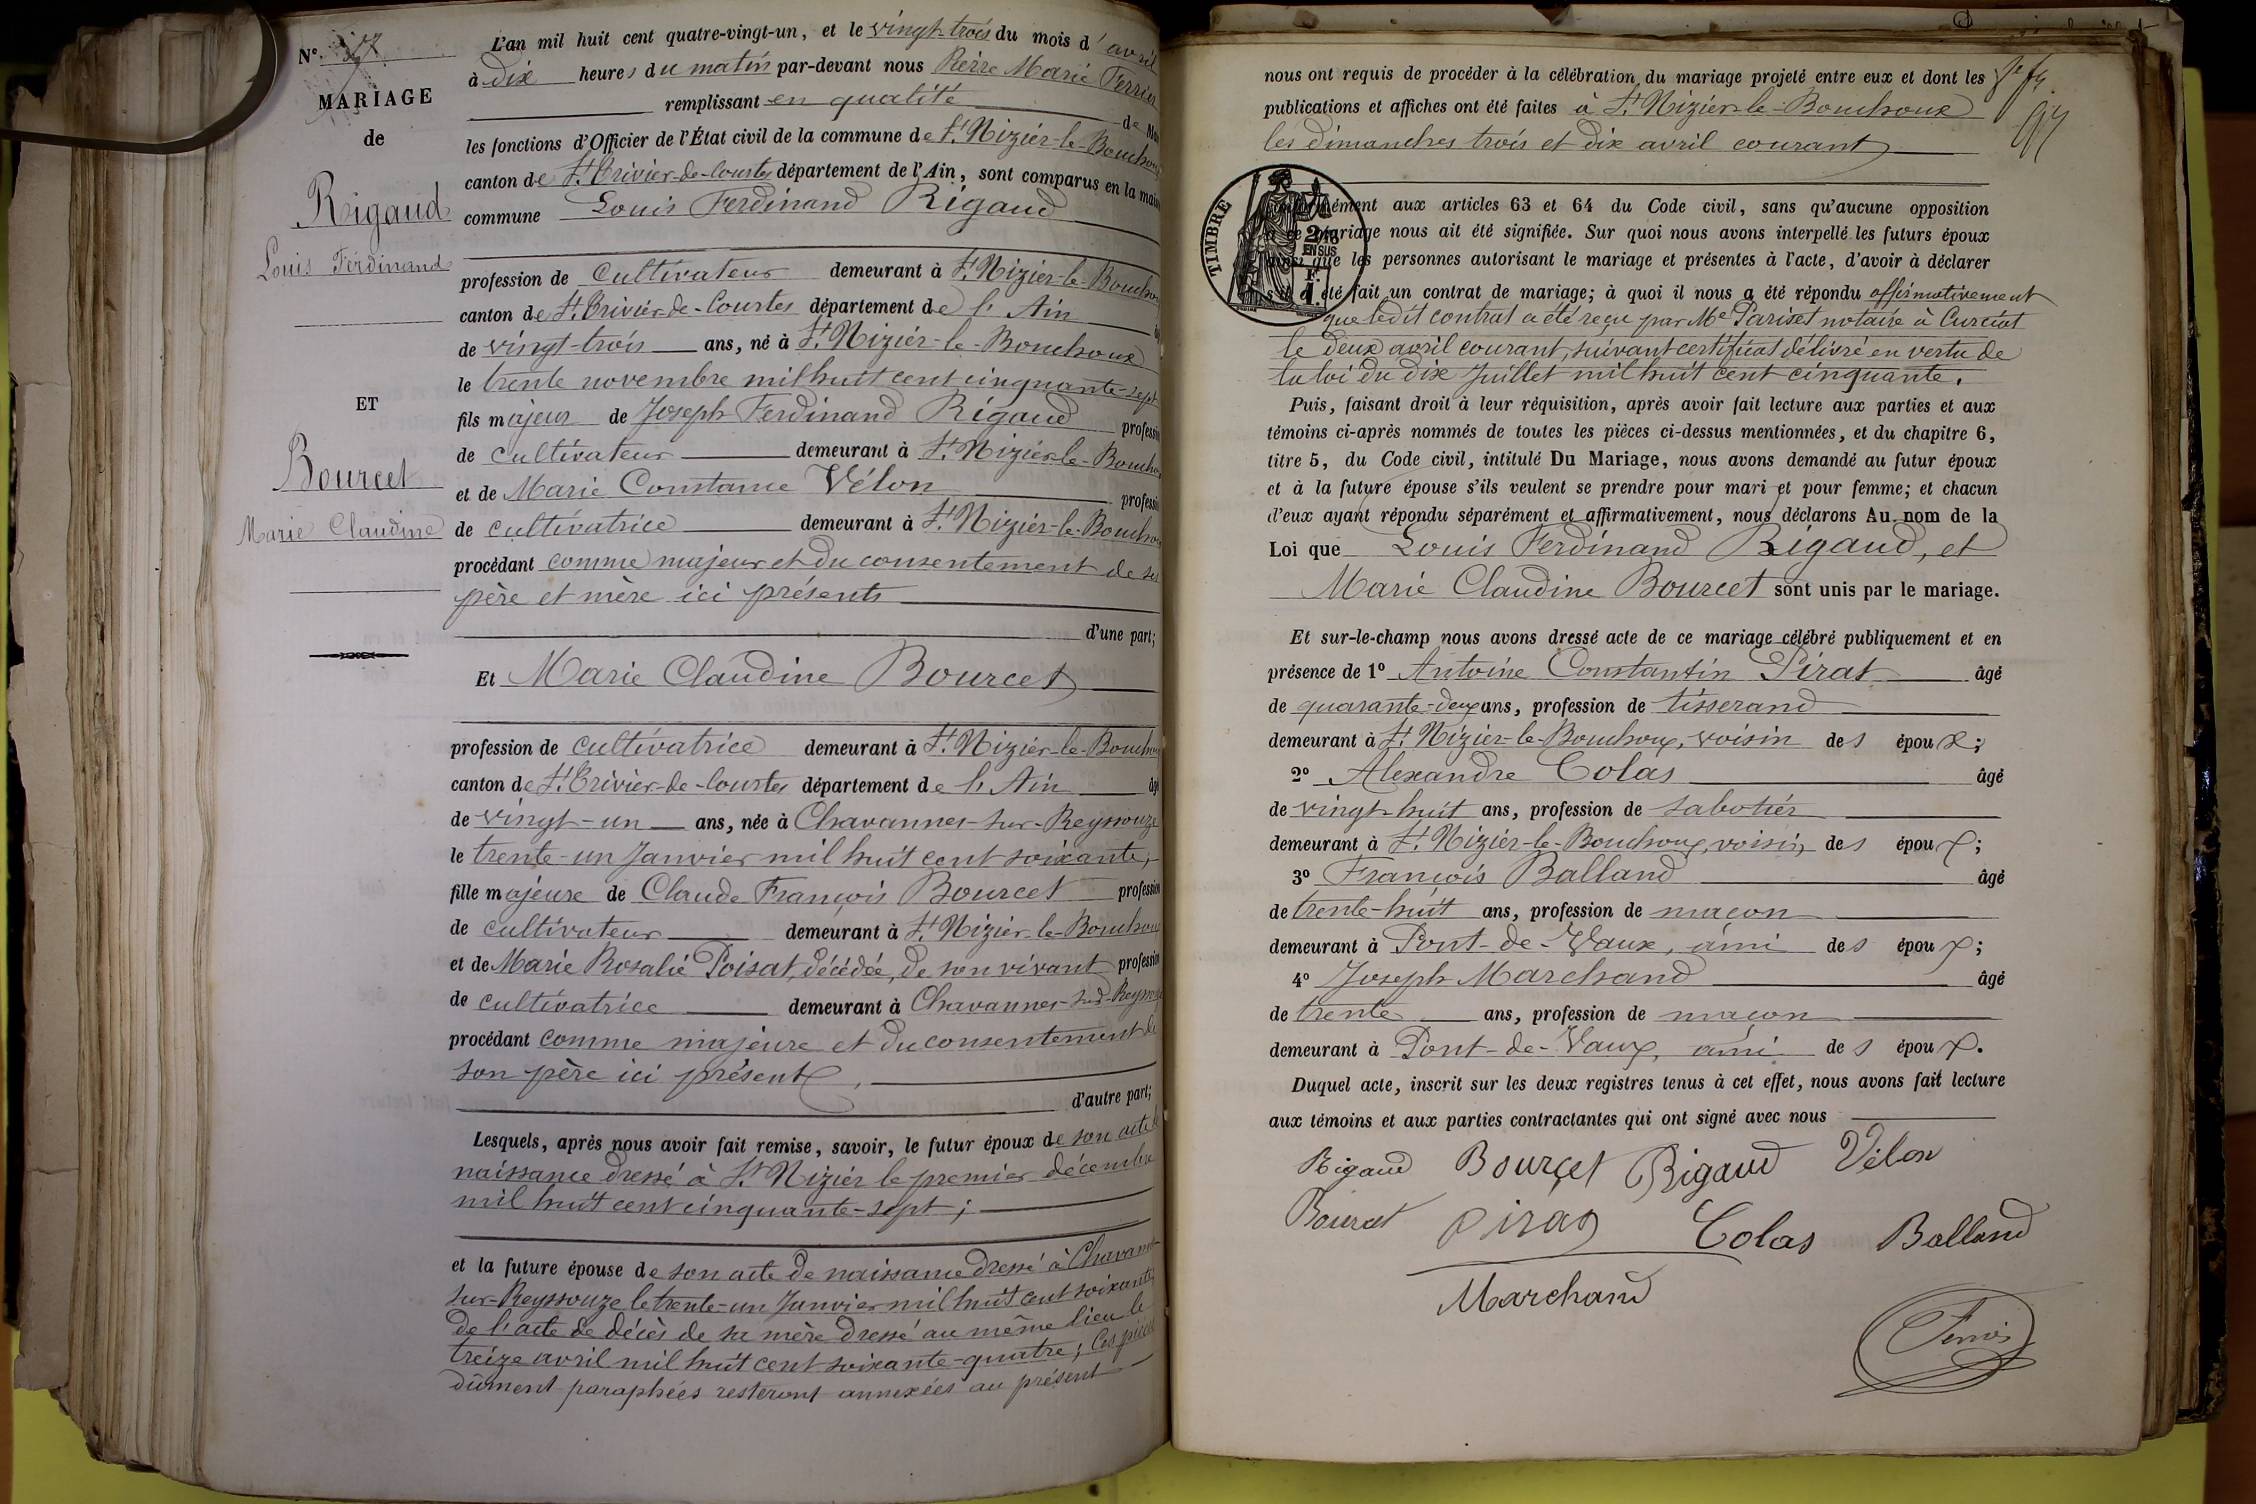 N°
MARIAGE
de
Rigaud
Louis Ferdinand
ET
Bourcet
Marie Claudine
L'an mil huit cent quatre-vingt-un, et le vingt-trois du mois d'avril
à dix heures du matin par-devant nous Pierre Marie Perrier
remplissant en qualité de
les fonctions d'Officier de l'État civil de la commune de St Nizier-le-Bouchoux
canton de St Trivier-de-Courtes département de l'Ain, sont comparus en la
commune Louis Ferdinand Rigaud
profession de cultivateur demeurant à St Nizier-le-Bouchoux
canton de St Trivier-de-Courtes département de l'Ain
de vingt-trois ans, né à St Nizier-le-Bouchoux
le trente novembre mil huit cent cinquante-sept
fils majeur de Joseph Ferdinand Rigaud profession
de cultivateur demeurant à St Nizier-le-Bouchoux
et de Marie Constance Vélon profession
de cultivatrice demeurant à St Nizier-le-Bouchoux
procédant comme majeur et du consentement de ses
père et mère ici présents
d'une part;
Et Marie Claudine Bourcet
profession de cultivatrice demeurant à St Nizier-le-Bouchoux
canton de St Trivier-de-Courtes département de l'Ain âgé
de vingt-un ans, née à Chavannes-sur-Reyssouze
le trente-un Janvier mil huit cent soixante,
fille majeure de Claude François Bourcet profession
de cultivateur demeurant à St Nizier-le-Bouchoux
et de Marie Rosalie Poisat, décédée, de son vivant profession
de cultivatrice demeurant à Chavannes-sur-Reyssouze
procédant comme majeure et du consentement de
son père ici présent,
d'autre part;
Lesquels, après nous avoir fait remise, savoir, le futur époux de son acte de
naissance dressé à St Nizier le premier décembre
mil huit cent cinquante-sept;
et la future épouse de son acte de naissance dressé à Chavannes
sur-Reyssouze le trente-un Janvier mil huit cent soixante;
de l'acte de décès de sa mère dressé au même lieu le
treize avril mil huit cent soixante-quatre; Ces pièces
dûment paraphées resteront annexées au présent
nous ont requis de procéder à la célébration du mariage projeté entre eux et dont les
publications et affiches ont été faites à St Nizier-le-Bouchoux
les dimanches trois et dix avril courant
TIMBRE
aux articles 63 et 64 du Code civil, sans qu'aucune opposition
mariage nous ait été signifiée. Sur quoi nous avons interpellé les futurs époux
que les personnes autorisant le mariage et présentes à l'acte, d'avoir à déclarer
été fait un contrat de mariage; à quoi il nous a été répondu affirmativement
que ledit contrat a été reçu par Me Pariset notaire à Curciat
le deux avril courant, suivant certificat délivré en vertu de
la loi du dix Juillet mil huit cent cinquante.
Puis, faisant droit à leur réquisition, après avoir fait lecture aux parties et aux
témoins ci-après nommés de toutes les pièces ci-dessus mentionnées, et du chapitre 6,
titre 5, du Code civil, intitulé Du Mariage, nous avons demandé au futur époux
et à la future épouse s'ils veulent se prendre pour mari et pour femme; et chacun
d'eux ayant répondu séparément et affirmativement, nous déclarons Au nom de la
Loi que Louis Ferdinand Rigaud, et
Marie Claudine Bourcet sont unis par le mariage.
Et sur-le-champ nous avons dressé acte de ce mariage célébré publiquement et en
présence de 1° Antoine Constantin Pirat âgé
de quarante-deux ans, profession de tisserand
demeurant à St Nizier-le-Bouchoux, voisin des époux;
2° Alexandre Colas âgé
de vingt-huit ans, profession de sabotier
demeurant à St Nizier-le-Bouchoux, voisin des époux;
3° François Balland âgé
de trente-huit ans, profession de maçon
demeurant à Pont-de-Vaux, ami des époux;
4° Joseph Marchand âgé
de trente ans, profession de maçon
demeurant à Pont-de-Vaux, ami des époux.
Duquel acte, inscrit sur les deux registres tenus à cet effet, nous avons fait lecture
aux témoins et aux parties contractantes qui ont signé avec nous
Rigaud Bourcet Rigaud Vélon
Bourcet Pirat Colas Balland
Marchand